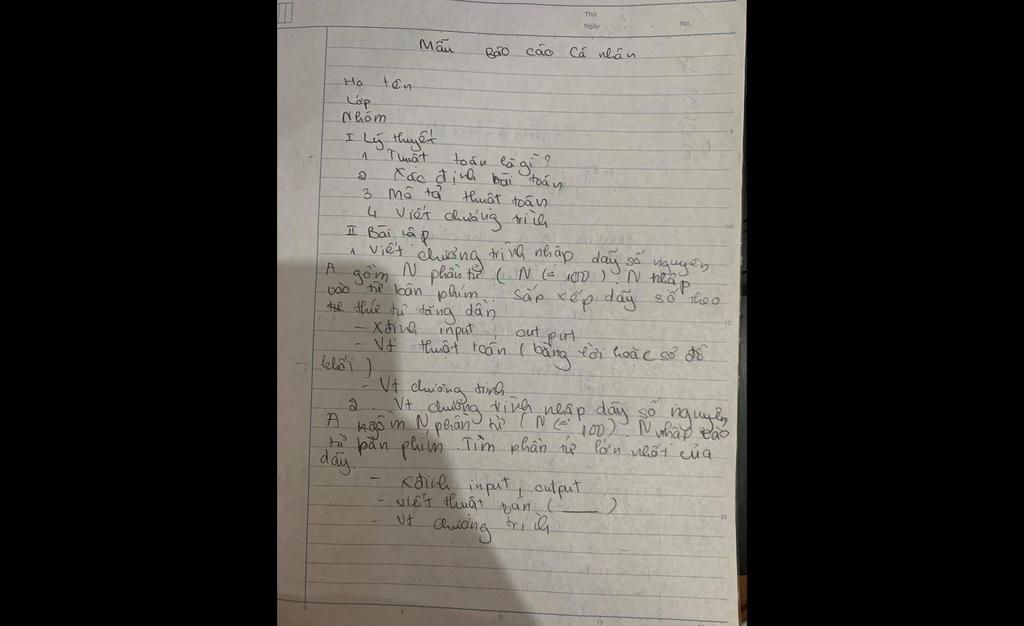 Thứ
Ngày
No.
Mẫu Báo cáo Cá nhân
Họ tên
Lớp
Nhóm
I Lý thuyết
1 Thuật toán là gì?
2 Xác định bài toán
3 Mô tả thuật toán
4 Viết chương trình
II Bài tập
1 Viết chương trình nhập dãy số nguyên
A gồm N phần tử ( N <= 100 ). N nhập
vào từ bàn phím. Sắp xếp dãy số theo
thứ tự tăng dần
- Xđịnh input, output
- Vt thuật toán ( bằng lời hoặc sơ đồ
khối )
- Vt chương trình
2. Vt chương trình nhập dãy số nguyên
A gồm N phần tử ( N <= 100). N nhập vào
từ bàn phím. Tìm phần tử lớn nhất của
dãy.
- Xđịnh input, output
- viết thuật toán ( ___ )
- Vt chương trình
5
10
15
25
5
10
15